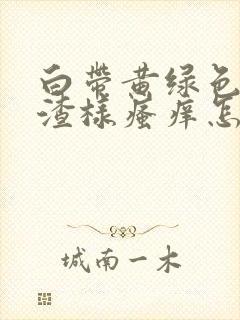 白带黄绿色
渣样瘙痒怎
城南一木